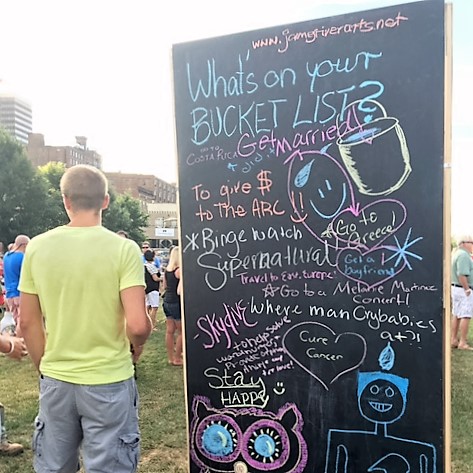 www.jamesriverarts.net
What's on your
BUCKET LIST?
Get Married!
COSTA RICA
i did!
To give $
to THE ARC!!
Go to
Greece!
*Binge watch
Supernatural
Get a
boyfriend
Travel to Eur. Europe
Go to a Melanie Martinez
Concert!
Where man Crybabies
at?!
Skydive
to help solve
Cure
Cancer
Stay
HAPPY